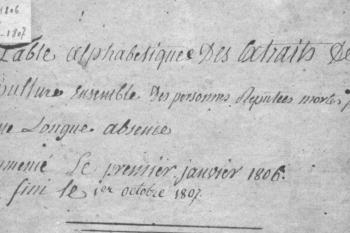 1806
-1807
Table alphabetique Des Extraits De
pulture Ensemble Des personnes Reputées mortes p
ue Longue absence
mmencé Le premier janvier 1806.
fini le 1er octobre 1807.